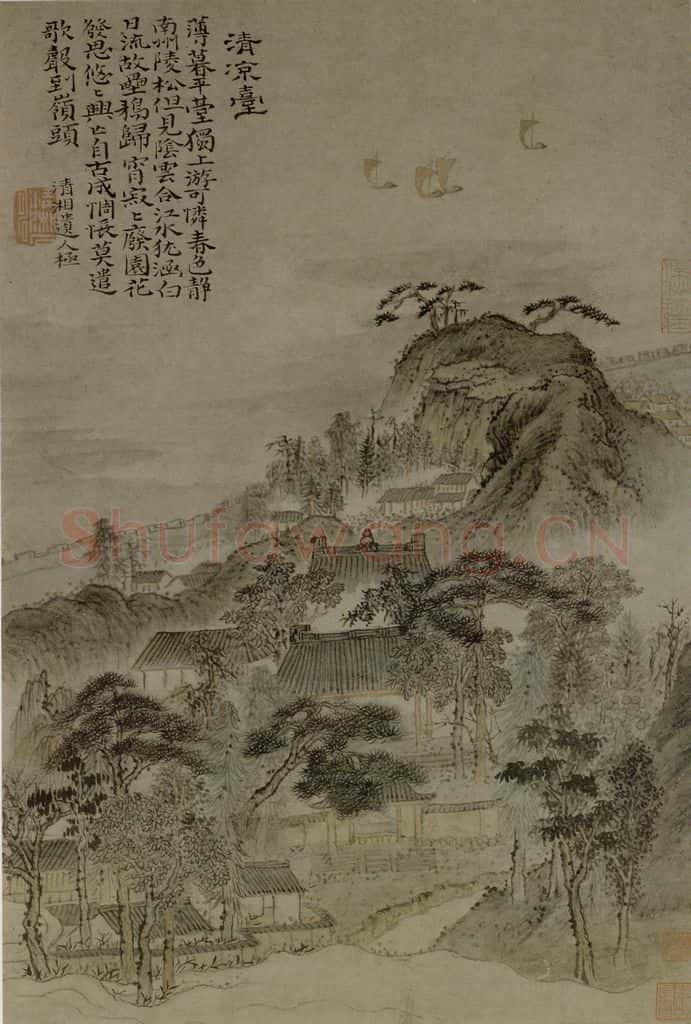 清凉臺
薄暮平臺獨上游可憐春色靜
南州陵松但見陰雲合江水犹涵白
日流故壘鴉歸宵寂〻廢園花
發思悠〻興亡自古成惆悵莫遣
歌聲到嶺頭
清湘遺人極
Shufawang.CN